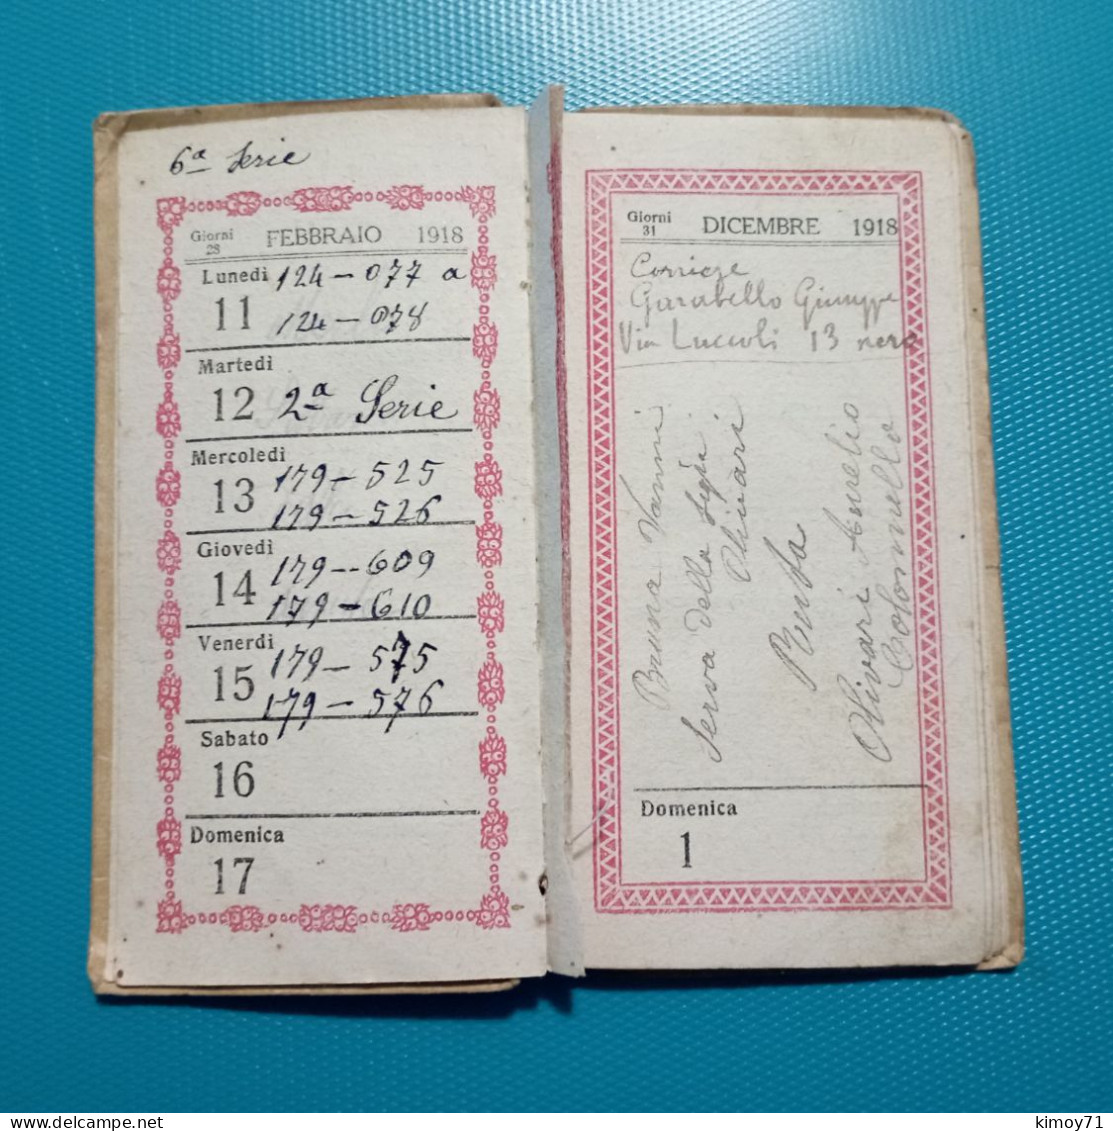 6ª Serie
Giorni 28 FEBBRAIO 1918
Lunedì 124 - 077 a
11 124 - 078
Martedì
12 2ª Serie
Mercoledì 179 - 525
13 179 - 526
Giovedì 179 - 609
14 179 - 610
Venerdì 179 - 575
15 179 - 576
Sabato
16
Domenica
17
Giorni 31 DICEMBRE 1918
Garabello Giuseppe
Via Luccoli 13 nero
Bruna Vanni
Serva della Sigra
Olivari
Berta
Olivari Aurelio
Colonnello
Domenica
1
kimoy71